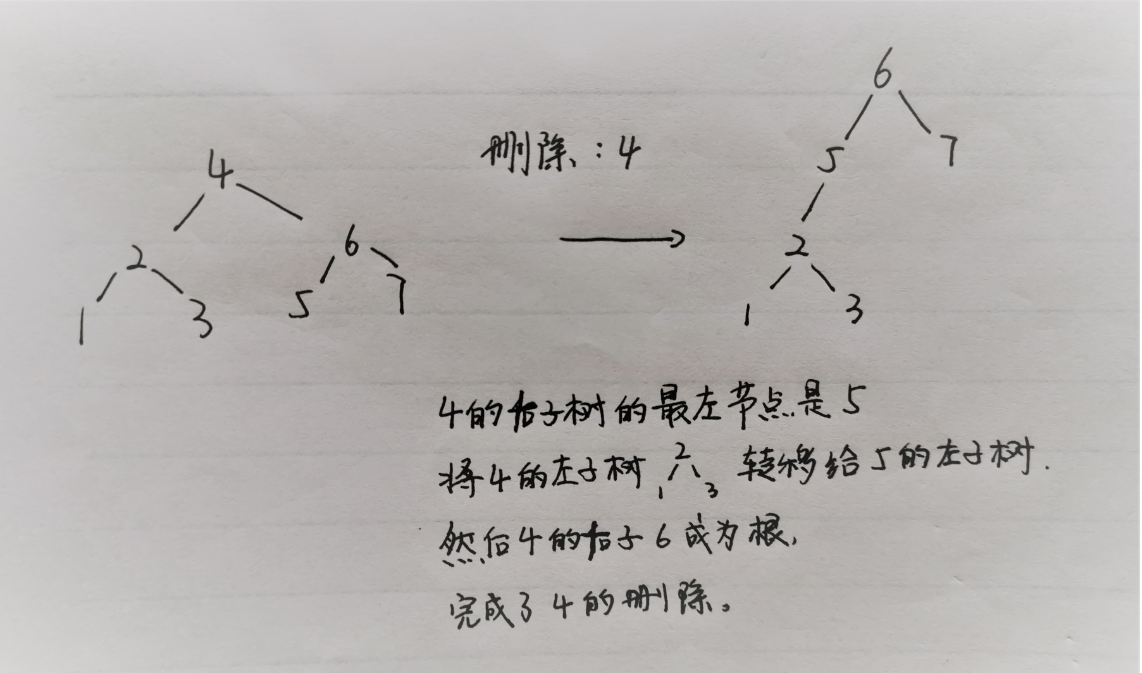 6
删除：4
5 7
4
2 6
2
1 3 5 7
1 3
4的右子树的最左节点是5
将4的左子树 2 1 3 转移给5的左子树.
然后4的右子6成为根,
完成了4的删除。